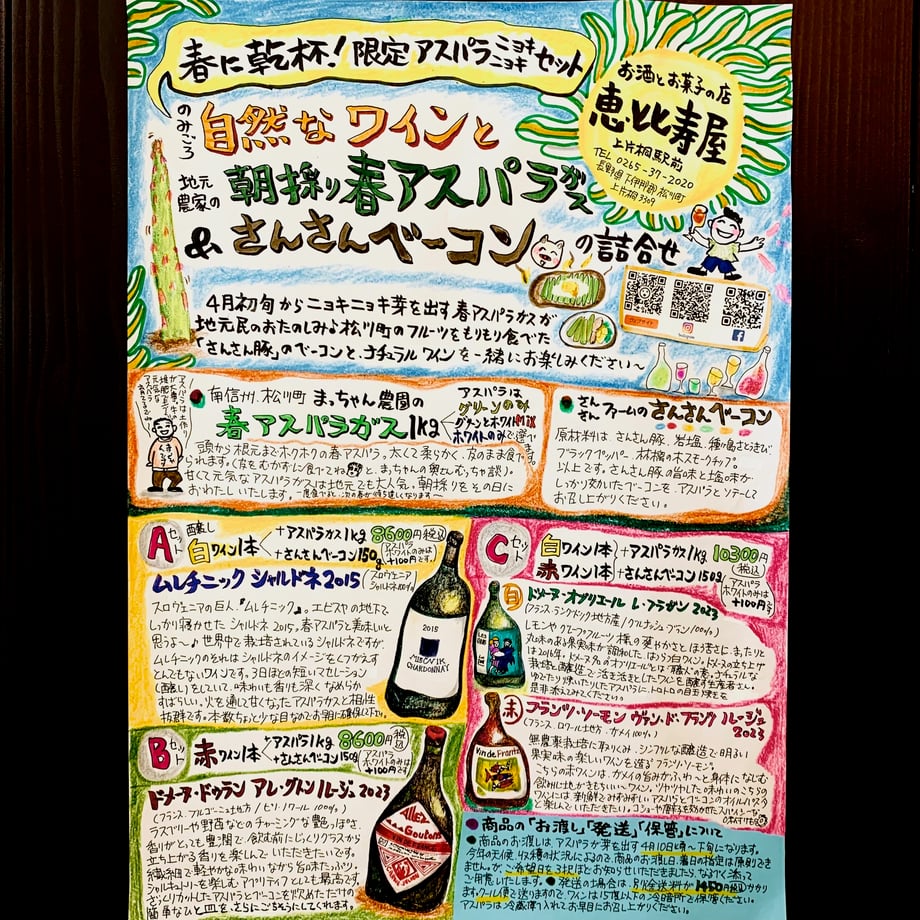 春に乾杯!限定アスパラニョキニョキセット
お酒とお菓子の店
恵比寿屋
上片桐駅前
TEL 0265-37-2020
長野県下伊那郡松川町
上片桐3309
のみごろ
自然なワインと
地元農家の
朝採り春アスパラガス
&さんさんベーコンの詰合せ
4月初旬からニョキニョキ芽を出す春アスパラガスが
地元民のおたのしみよ松川町のフルーツをもりもり食べた
「さんさん豚」のベーコンと、ナチュラルワインを一緒にお楽しみください~
南信州、松川町 まっちゃん農園の
春アスパラガス1kg
アスパラは
グリーンのみ
グリーンとホワイトMIX
ホワイトのみで選べます。
頭から根元までホクホクの春アスパラ。太くて柔らかく、皮のまま食べ
られます。(皮をむかずに食べてね と、まっちゃんの奥さんむっちゃ談)。
甘くて元気なアスパラガスは地元でも大人気。朝採りをその日に
おわたしいたします。
さんさんファームのさんさんベーコン
原材料は、さんさん豚、岩塩、種ヶ島さとうきび
ブラックペッパー、林檎の木スモークチップ。
以上です。さんさん豚の旨味と塩味が
しっかり効いたベーコンを、アスパラとソテーして
お召し上がりください。
Aセット
醸し
白ワイン1本
+アスパラガス1kg
+さんさんベーコン150g
8600円税込
アスパラ
ホワイトのみは
+100円です。
ムレチニック シャルドネ2015
スロヴェニア
シャルドネ100%
スロヴェニアの巨人、『ムレチニック』。エビスヤの地下で
しっかり寝かせた シャルドネ 2015。春アスパラと美味しいと
思うよ~♪世界中で栽培されているシャルドネですが、
ムレチニックのそれはシャルドネのイメージをくつがえす
とんでもないワインです。3日ほどの短いマセレーション
(醸し)をしていて、味わいも香りも深くなめらか
すばらしい。火を通して甘くなったアスパラガスと相性
抜群です。本数ちょと少な目なのでお早目に確保して下さい。
2015
MLEČNIK
CHARDONNAY
Bセット
赤ワイン1本
+アスパラ1kg
+さんさんベーコン150g
8600円税込
アスパラ
ホワイトのみは
+100円です
ドメーヌ・ドゥラン アレ・グトン ルージュ 2023
(フランス・ブルゴーニュ地方 / ピノ・ノワール 100%)
ラズベリーや野苺などのチャーミングな艶っぽさ、
香りがとても豊潤で、飲む前にじっくりグラスから
立ち上がる香りを楽しんでいただきたいです。
繊細で軽やかな味わいながら旨味たっぷり。
シャルキュトリーを楽しむアペリティフとしても最適です。
ざっくりカットしたアスパラとベーコンを炒めただけの
簡単なひと皿を、さらにごちそうにしてくれます。
ALLEZ
Goutons
VIN DE FRANCE
Cセット
白ワイン1本
赤ワイン1本
+アスパラガス1kg
+さんさんベーコン150g
10300円
(税込)
アスパラ
ホワイトのみは
+100円です
白
ドメーヌ・オブリエール レ・フラザン 2023
(フランス・ラングドック地方産 / グルナッシュブラン100%)
レモンやグレープフルーツ様の爽やかさとほろ苦さに、まったりと
丸味のある果実味が調和した ほろうま白ワイン。ドメーヌの立ち上げ
栽培と醸造で活き活きとしたワインを醸す生産者さん。
ゆでたり焼いたりしたアスパラに、トロトロの目玉焼きを
是非添えてみてください。
赤
フランツ・ソーモン ヴァン・ド・フランク ルージュ
2023
(フランス・ロワール地方、ガメイ100%)
無農薬栽培に取りくみ、シンプルな醸造で明るい
果実味の楽しいワインを造るフランツ・ソーモン。
こちらの赤ワインは、ガメイの旨みがふわ~っと身体になじむ
ワインには新鮮でみずみずしいアスパラとベーコンのオイルパスタ
Vin de Frantz
商品の「お渡し」「発送」「保管」について
商品のお渡しは アスパラが芽を出す4月10日頃~下旬になります。
今年の天候、収穫の状況によるので、商品のお渡し日、着日の指定は原則できま
せんが、ご希望日を3択ほどお知らせいただきましたら、なるべく添って
ご用意いたします。
発送の場合は、別途送料が1450円(税込)かかり
ます。クール便で送りますので、ワインは15度以下の冷暗所で保管ください。
アスパラは冷蔵庫で入れてお早目にお召し上がりください。